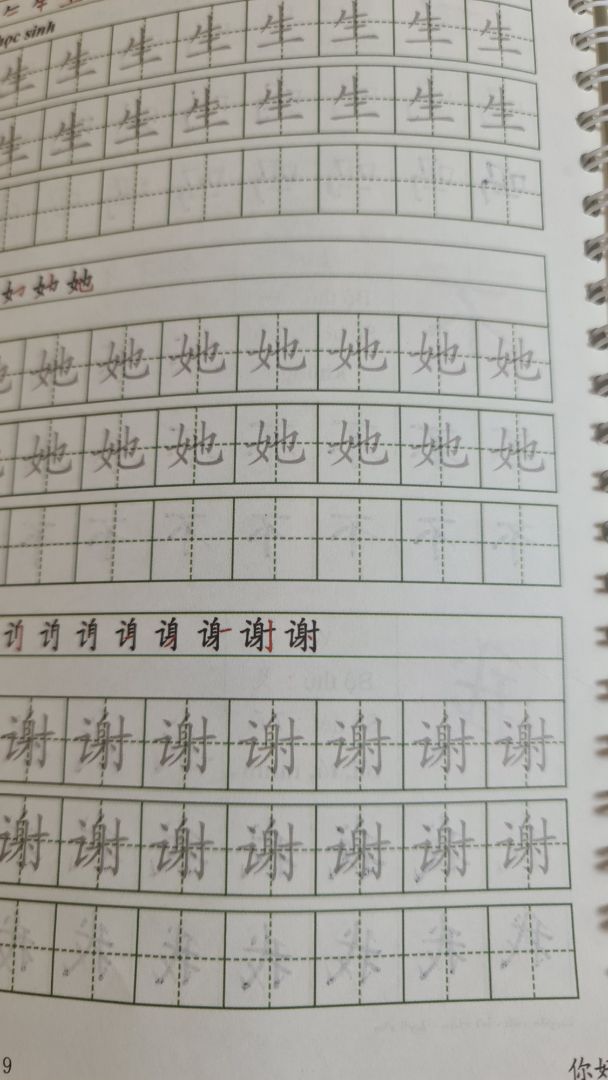 học sinh
生 生 生 生 生 生 生 生
生 生 生 生 生 生 生 生
她
她 她 她 她 她 她 她
她 她 她 她 她 她 她
谢 谢
谢 谢 谢 谢 谢 谢 谢
谢 谢 谢 谢 谢 谢 谢
9
你好